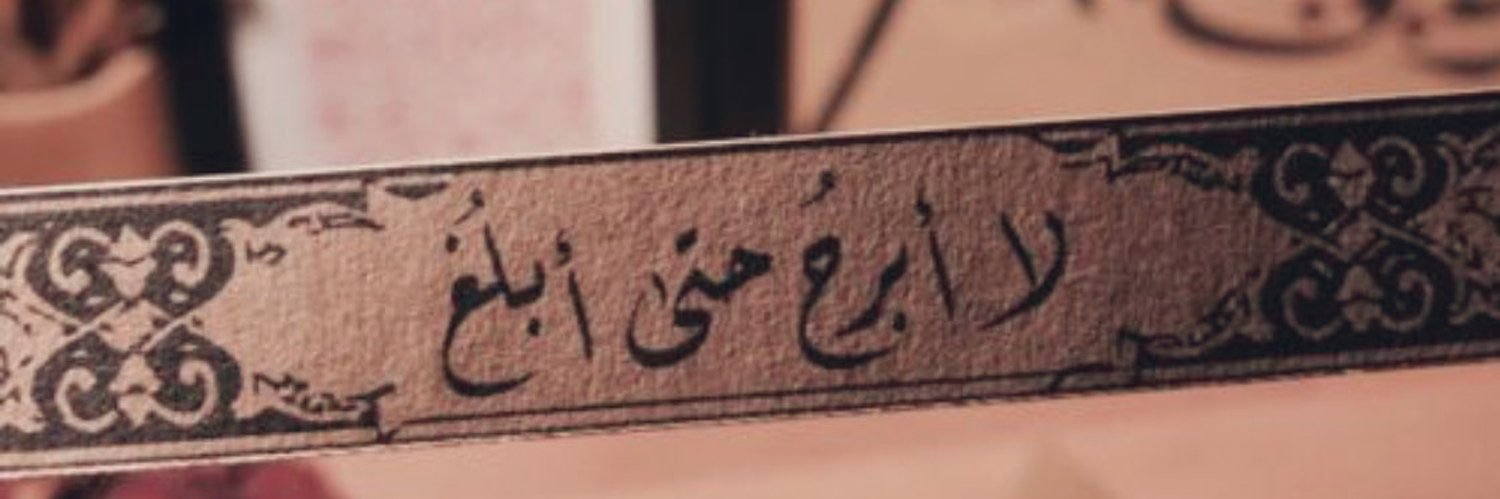 لا أبرحُ حتى أبلغُ